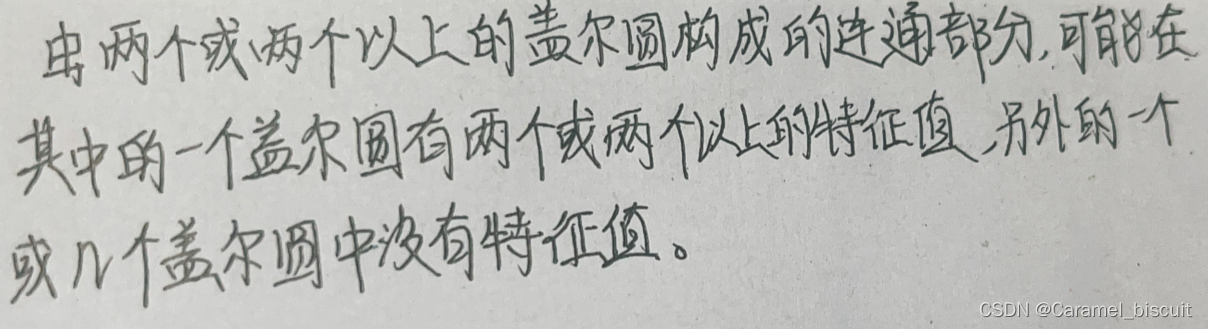 由两个或两个以上的盖尔圆构成的连通部分,可能在
其中的一个盖尔圆有两个或两个以上的特征值,另外的一个
或几个盖尔圆中没有特征值。
CSDN @Caramel_biscuit